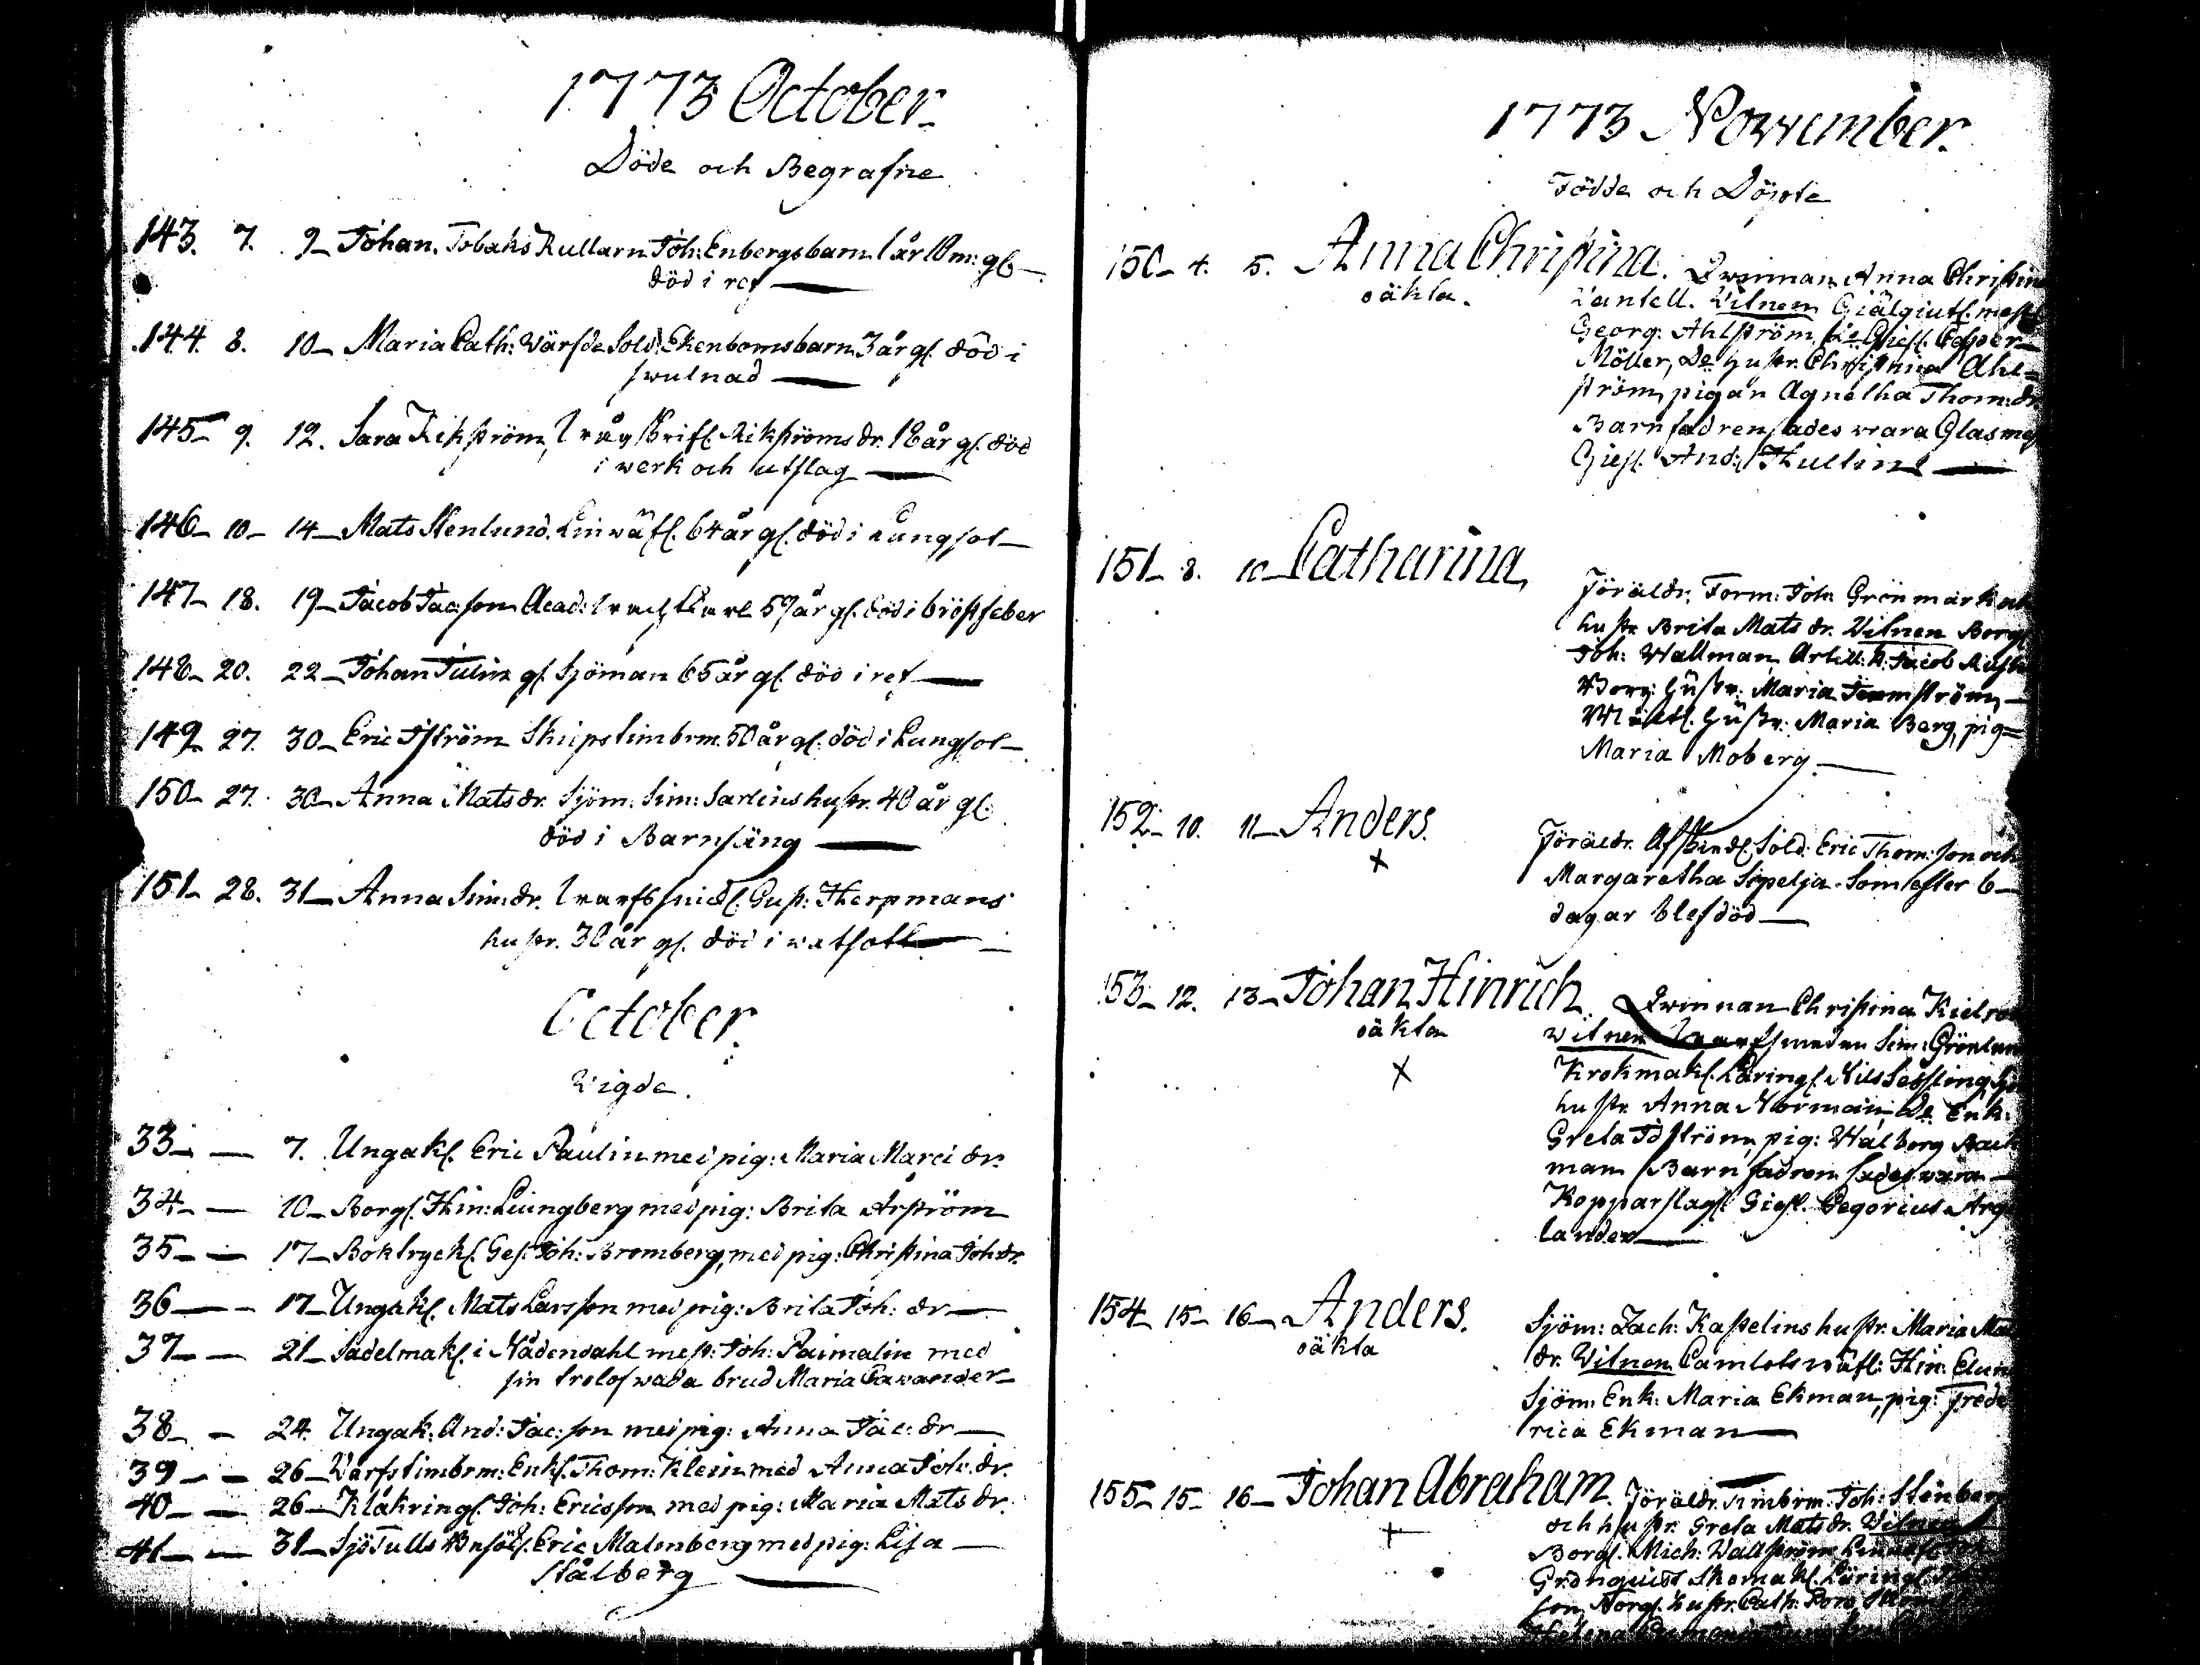 1773 October.
Döde och Begrafne
143. 7. 9 Johan. Tobaks Rullarn Joh: Enbergs barn 1 år 10 m: gl.
död i ref
144. 8. 10 Maria Cath: Wärfde Sold: Ekenboms barn 3 år gl. död i
swulnad
145 9. 12. Sara Rikström, Rikströms dr. 18 år gl. död
i werk och utslag
146 10 14 Mats Stenlund. Linwäf. 64 år gl. död i Lungsot
147 18. 19 Jacob Jacsson Acad: 57 år gl. död i bröstfeber
148 20. 22 Johan Tulin gl. Sjöman 65 år gl. död i ref
149 27. 30 Eric Iström Skieps timbrm. 50 år gl. död i Lungsot
150 27. 30 Anna Mats dr. Sjöm: Sim: Sarlins hustr. 40 år gl.
död i Barnsäng
151 28. 31 Anna Sim: dr. Gust: Herpmans
hustr. 30 år gl. död i watsott
October.
Wigde.
33 7. Ungakl. Eric Paulin med pig: Maria Marci dr.
34 10 Borgl. Hin: Liungberg med pig: Brita Årström
35 17 Boktryckl. Ges: Joh: Bromberg, med pig: Christina Joh dr.
36 17 Ungakl. Mats Larsson med pig: Brita Joh: dr
37 21 Sadelmakl. i Nådendahl mest: Joh: Paimalin med
sin trolofwada brud Maria Pawander
38 24. Ungak: And: Jac: son med pig: Anna Jac: dr
39 26 Warfstimbrm: Enkl. Thom: Klein med Anna Joh. dr.
40 26 Klåkringl. Joh: Ericsson med pig: Maria Mats dr.
41 31 Sjö Tulls Eric Malmberg med pig: Lisa
Stålberg
1773 Nowember.
Födde och Döpte
150 4. 5. Anna Christina. Qwinnan Anna Christin
oäkta. Wantell. Witnen Giälgiut. mest
Georg: Ahlström, De Giesl. Casper
Möller, De hustr. Christina Ahl=
ström, pigan Agnetha Thom: dr
Barnfadren sades wara Glasmest
Giesl. And: Thullin
151 8. 10 Catharina, Föräldr. Form: Joh: Grönmark och
hustr. Brita Mats dr. Witnen Borgl
Joh: Wallman, Artill: k: Jacob
Borg: hustr: Maria
hustr: Maria Berg, pig=
Maria Moberg.
152 10. 11 Anders. Föräldr. Afskiedl. Sold: Eric Thom: son och
Margaretha Sipelja. Som efter 6
dagar blef död
153 12. 13 Johan Hinrich. Qwinnan Christina
oäkta Witnen Sim: Grönlun
Krokmakl. Läringl. Nils
hustr. Anna Norman De Enk:
Greta Idström, pig: Walborg Back
man Barnfadren sades wara
Kopparslagl. Giesl. Gegorius Arge
lander
154 15 16 Anders. Sjöm: Zach: Kastelins hustr. Maria Mats
oäkta dr. Witnen Camlotswäfl: Hin: Elun
Sjöm: Enk: Maria Ekman, pig: Frede
rica Ekman
155 15 16 Johan Abraham. Föräldr. Timbrm. Joh: Stenberg
och hustr. Greta Mats dr. Witnen
Borgl. Mich: Wallström
Grönquist Skomakl. Läringl.
son Borgl. hustr. Cath:
Helena